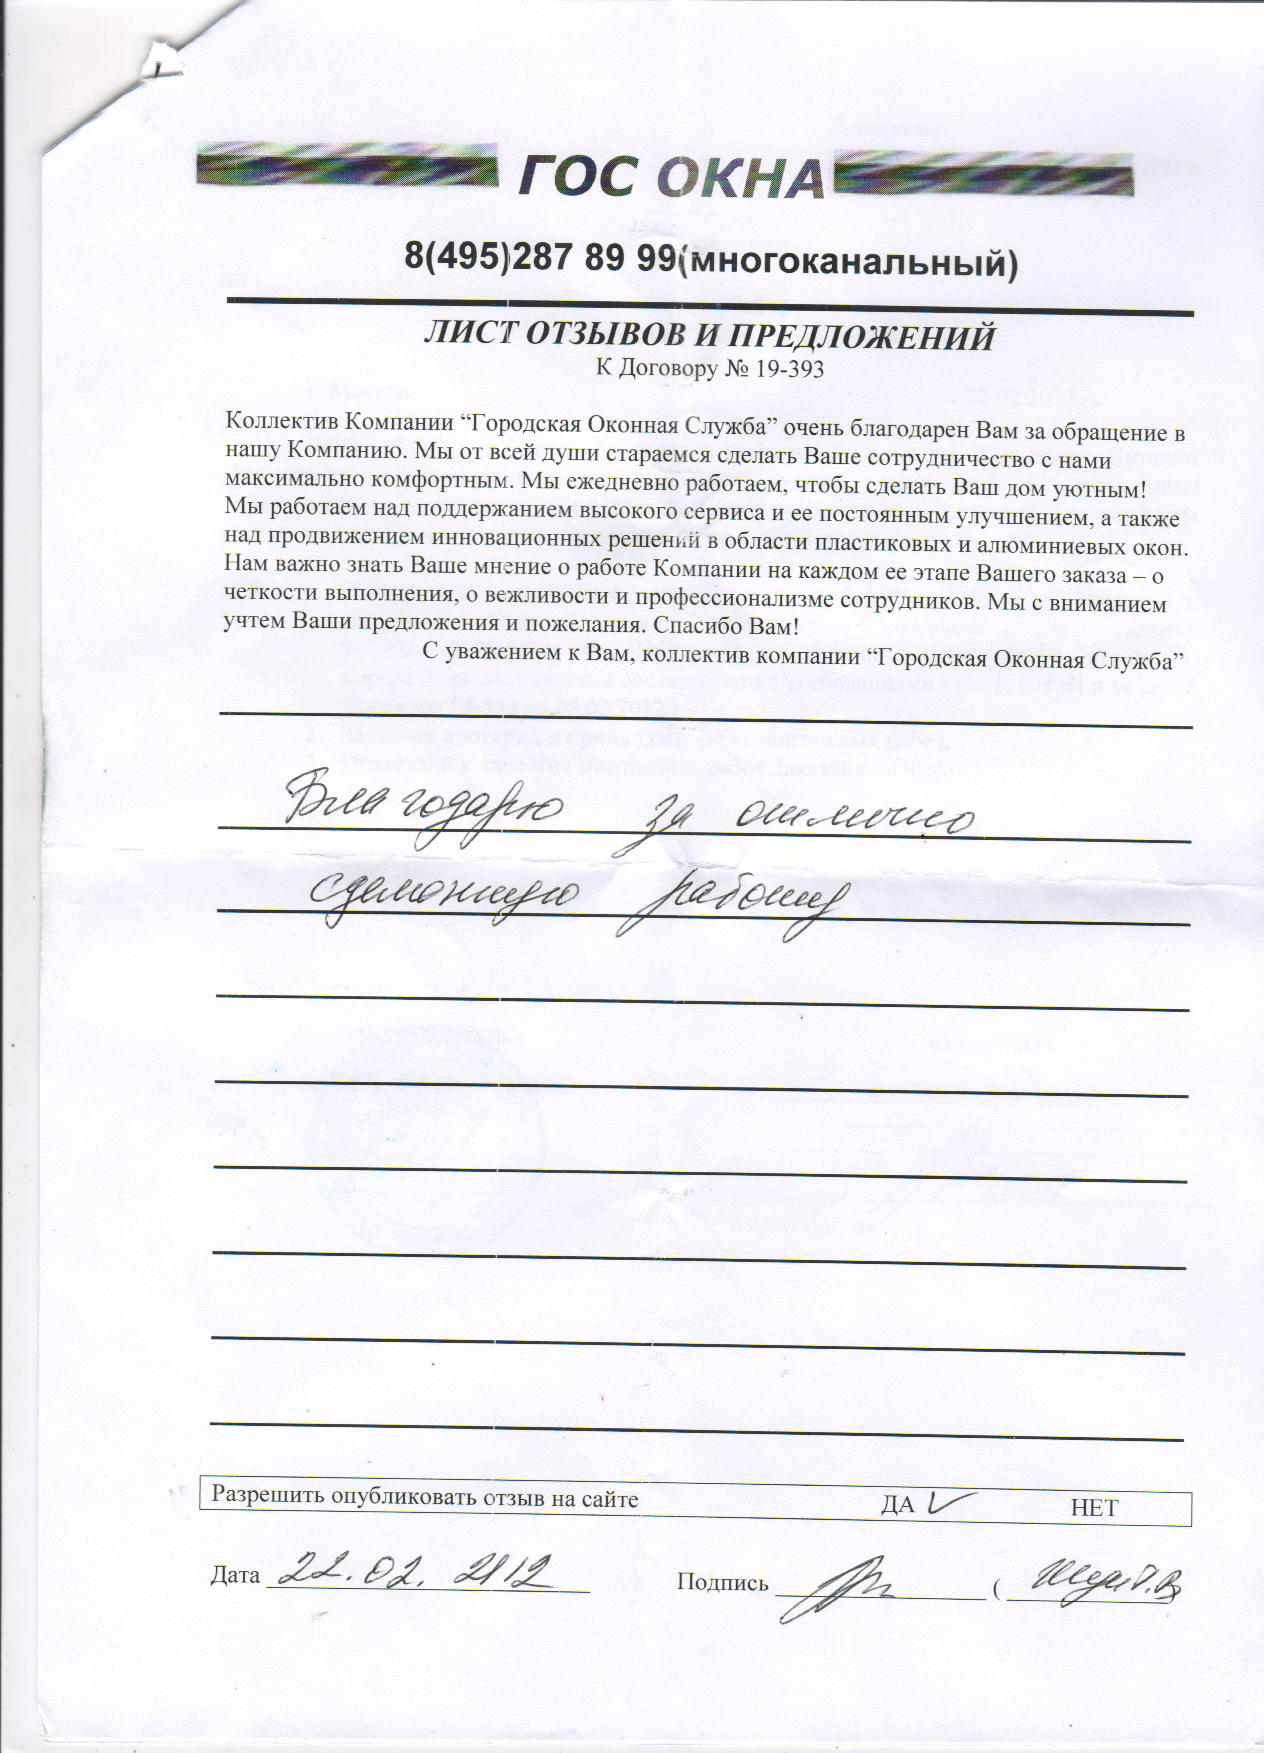 ГОС ОКНА
8(495)287 89 99(многоканальный)
ЛИСТ ОТЗЫВОВ И ПРЕДЛОЖЕНИЙ
К Договору № 19-393
Коллектив Компании “Городская Оконная Служба” очень благодарен Вам за обращение в
нашу Компанию. Мы от всей души стараемся сделать Ваше сотрудничество с нами
максимально комфортным. Мы ежедневно работаем, чтобы сделать Ваш дом уютным!
Мы работаем над поддержанием высокого сервиса и ее постоянным улучшением, а также
над продвижением инновационных решений в области пластиковых и алюминиевых окон.
Нам важно знать Ваше мнение о работе Компании на каждом ее этапе Вашего заказа – о
четкости выполнения, о вежливости и профессионализме сотрудников. Мы с вниманием
учтем Ваши предложения и пожелания. Спасибо Вам!
С уважением к Вам, коллектив компании “Городская Оконная Служба”
Благодарю за отлично
сделанную работу
Разрешить опубликовать отзыв на сайте ДА НЕТ
Дата 22.02.2012 Подпись